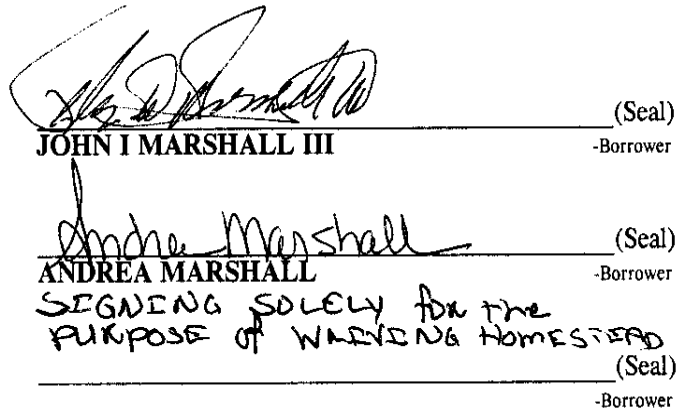 John I Marshall III
(Seal)
JOHN I MARSHALL III
-Borrower
Andrea Marshall
(Seal)
ANDREA MARSHALL
-Borrower
SIGNING SOLELY for the
PURPOSE of WAIVING HOMESTEAD
(Seal)
-Borrower